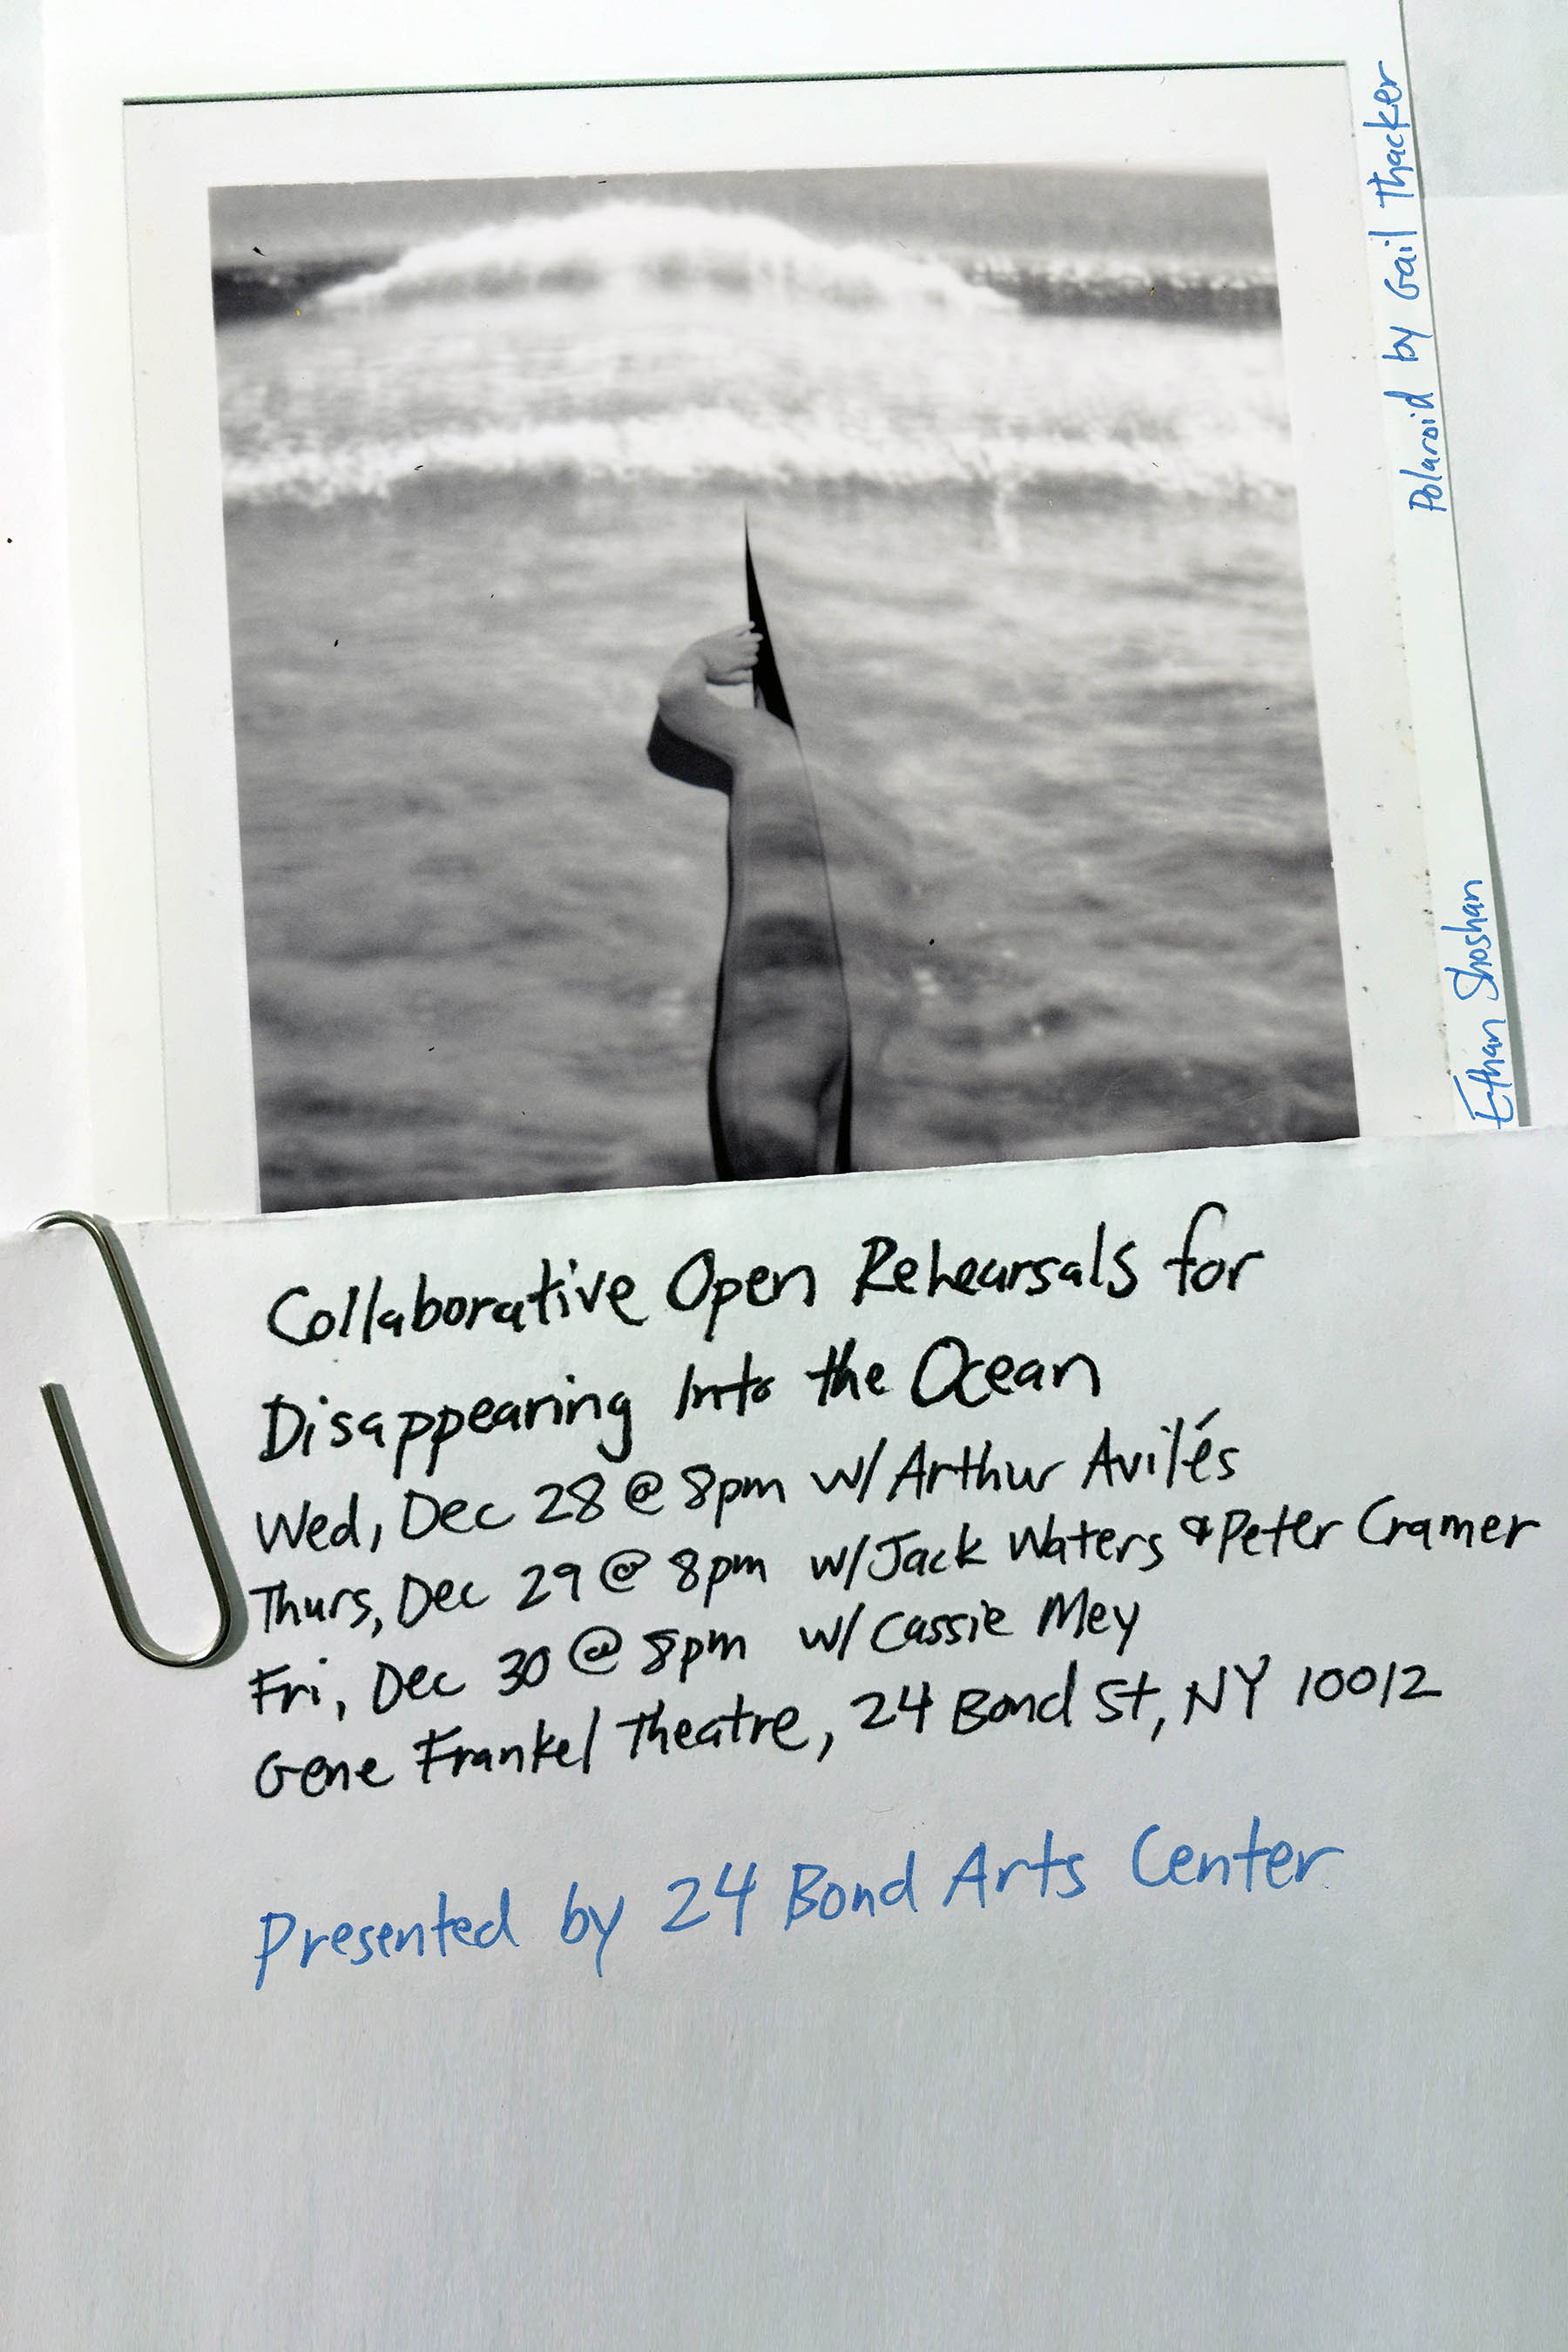 Polaroid by Gail Thacker
Ethan Shoshan
Collaborative Open Rehearsals for
Disappearing Into the Ocean
Wed, Dec 28 @ 8pm w/ Arthur Avilés
Thurs, Dec 29 @ 8pm w/ Jack Waters & Peter Cramer
Fri, Dec 30 @ 8pm w/ Cassie Mey
Gene Frankel Theatre, 24 Bond St, NY 10012
Presented by 24 Bond Arts Center